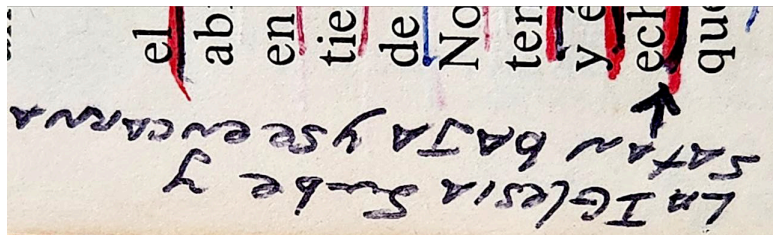 el
ab
en
tie
de
No
ten
y é
ech
que
LA IGlesiA Sube y
SATAN bAJA y se eNCARNA